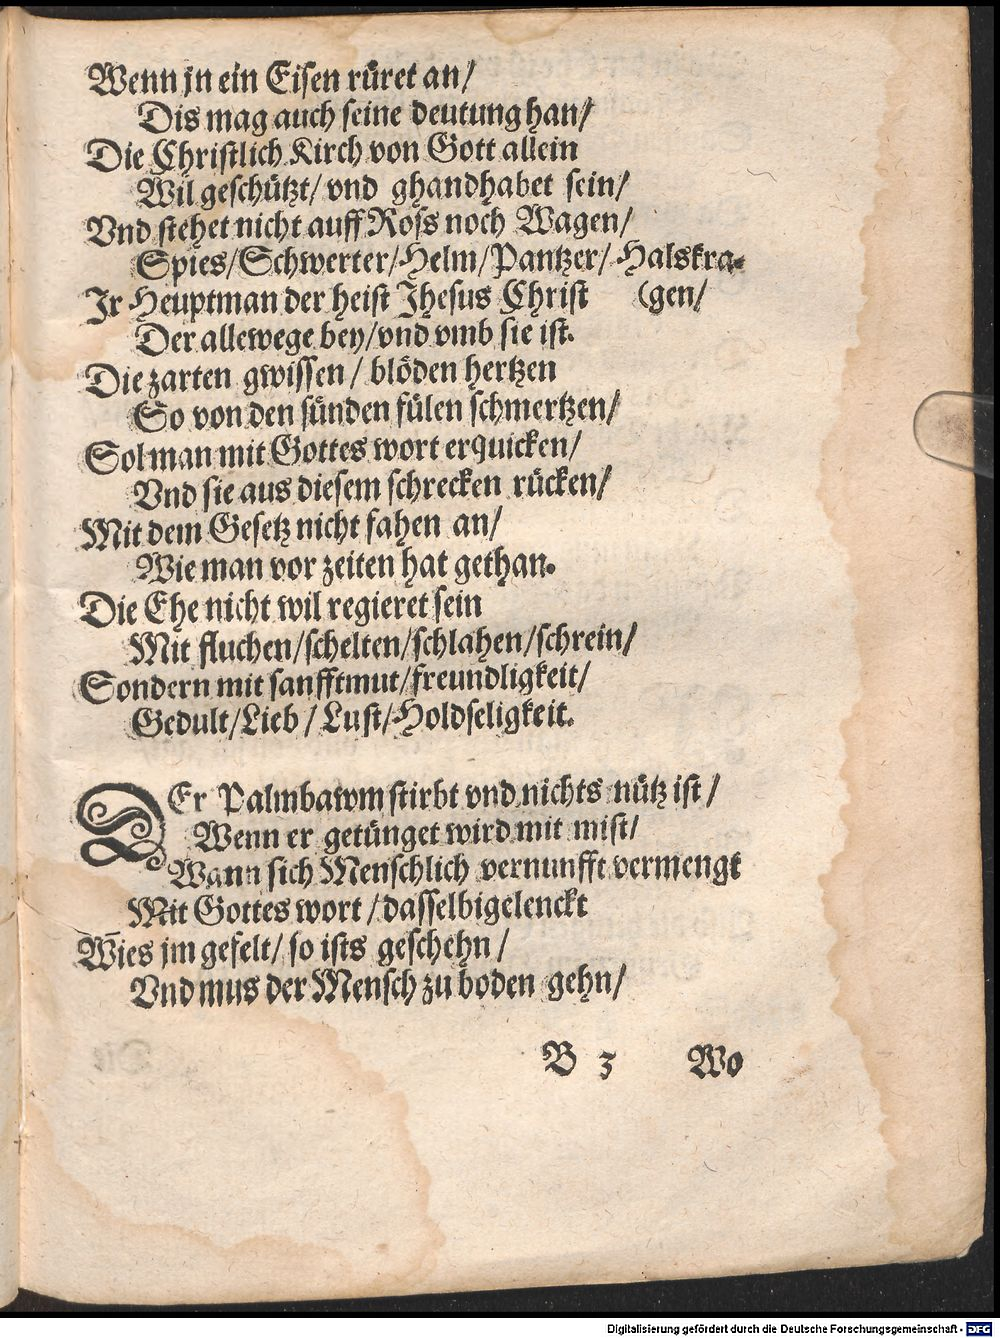 Wenn jn ein Eisen rüret an/
Dis mag auch seine deutung han/
Die Christlich Kirch von Gott allein
Wil geschützt/ vnd ghandhabet sein/
Vnd stehet nicht auff Ross noch Wagen/
Spies/Schwerter/Helm/Pantzer/Halskra-
Jr Heuptman der heist Jhesus Christ (gen/
Der allewege bey/vnd vmb sie ist.
Die zarten gwissen/ blöden hertzen
So von den sünden fülen schmertzen/
Sol man mit Gottes wort erquicken/
Vnd sie aus diesem schrecken rücken/
Mit dem Gesetz nicht fahen an/
Wie man vor zeiten hat gethan.
Die Ehe nicht wil regieret sein
Mit fluchen/schelten/schlahen/schrein/
Sondern mit sanfftmut/freundligkeit/
Gedult/Lieb/Lust/Holdseligkeit.
DEr Palmbawm stirbt vnd nichts nütz ist/
Wenn er getünget wird mit mist/
Wann sich Menschlich vernunfft vermengt
Mit Gottes wort/dasselbig elenckt
Wies jm gefelt/ so ists geschehn/
Vnd mus der Mensch zu boden gehn/
B 3 Wo
Digitalisierung gefördert durch die Deutsche Forschungsgemeinschaft - DFG